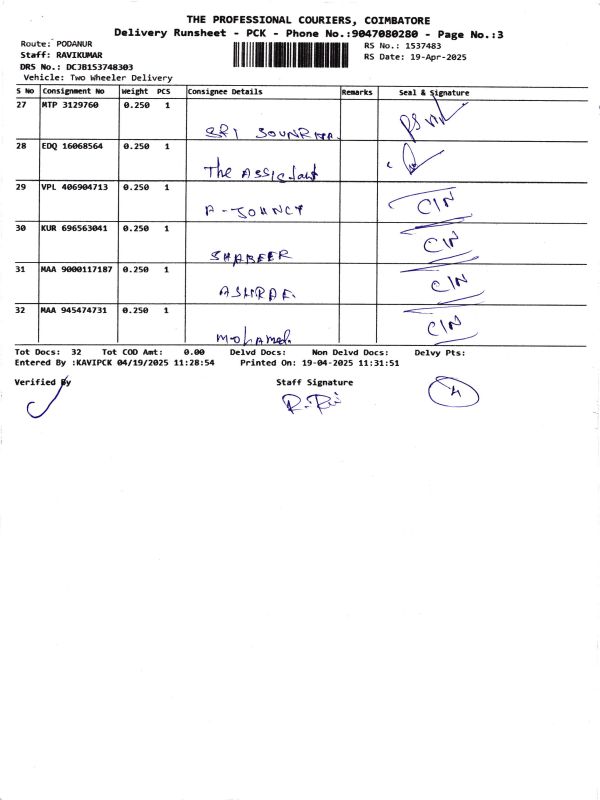 THE PROFESSIONAL COURIERS, COIMBATORE
Delivery Runsheet - PCK - Phone No.:9047080280 - Page No.:3
Route: PODANUR RS No.: 1537483
Staff: RAVIKUMAR RS Date: 19-Apr-2025
DRS No.: DCJB153748303
Vehicle: Two Wheeler Delivery
S No Consignment No Weight PCS Consignee Details Remarks Seal & Signature
27 MTP 3129760 0.250 1
SRI
28 EDQ 16068564 0.250 1
The Assistant
29 VPL 406904713 0.250 1
A-JOUNCY CIN
30 KUR 696563041 0.250 1
SHAREER CIN
31 MAA 9000117187 0.250 1
CIN
32 MAA 945474731 0.250 1
Mohamed. CIN
Tot Docs: 32 Tot COD Amt: 0.00 Delvd Docs: Non Delvd Docs: Delvy Pts:
Entered By :KAVIPCK 04/19/2025 11:28:54 Printed On: 19-04-2025 11:31:51
Verified By Staff Signature